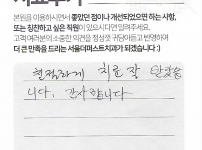 본원을 이용하시면서 좋았던 점이나 개선되었으면 하는 사항,
또는 칭찬하고 싶은 직원이 있으시다면 알려주세요.
고객 여러분의 소중한 의견을 정성껏 귀담아듣고 반영하여
더 큰 만족을 드리는 서울더퍼스트치과가 되겠습니다 :)
친절하게 치료 잘 받았습
니다. 감사합니다